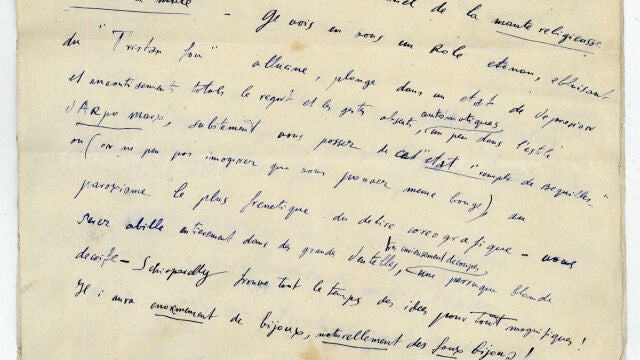 de la mante religieusse
- Ge vois en vous un Role etonan, ebluisant
du "Tristan fou" allucine, plonge dans un etat de depresion
et anéontisements totals le regart et les gests absents, automatiques, un peu dans l'estil
d'ARpo Marx, subitement vous posser de cet "etat remplit de bequilles"
ou (on ne peu pas imaginer que vous pouver meme bouge) au
paroxisme le plus frenetique du delire coreografique - vous
serez abille entierement dans des grands dentelles, tres curieusement decoupes, une perruque blonde
decoife - Schiaparelly trouve tout le temps des idees pour tout magnifiques!
Il i aura enormement de bijoux, naturellement des faux bijoux!